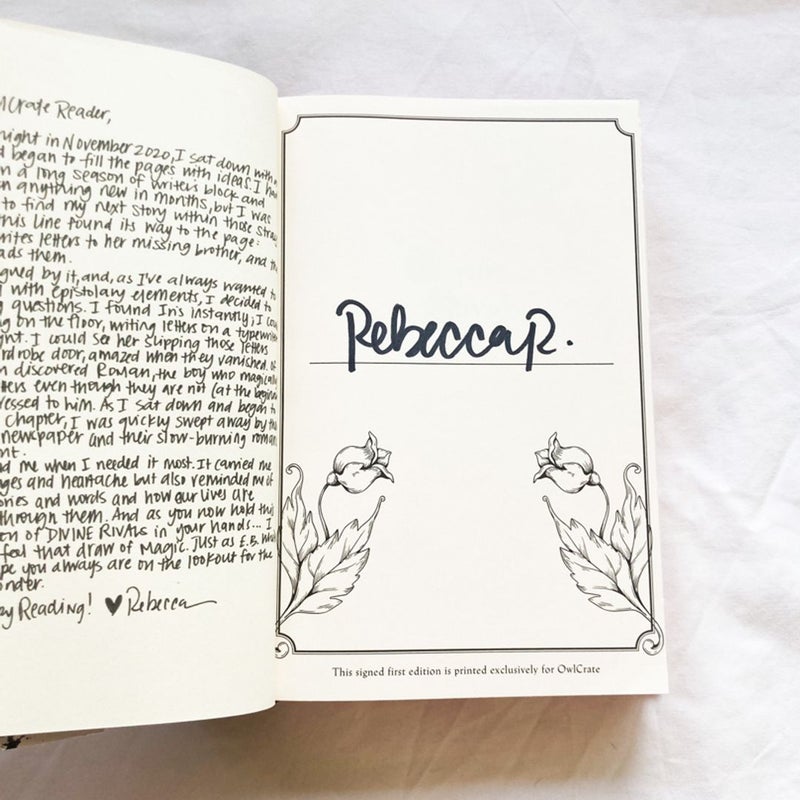 Crate Reader,
night in November 2020, I sat down with
began to fill the pages with ideas. I
a long season of writer's block and
anything new in months, but I was
to find my next story within those
this line found its way to the page:
writes letters to her missing brother, and
them.
by it, and, as I've always wanted to
with epistolary elements, I decided to
questions. I found Iris instantly; I
on the floor, writing letters on a
I could see her slipping those letters
door, amazed when they vanished.
discovered Roman, the boy who
even though they are not (at the
to him. As I sat down and began to
chapter, I was quickly swept away by
newspaper and their slow-burning
me when I needed it most. It carried me
and heartache but also reminded me of
and words and how our lives are
through them. And as you now hold this
of DIVINE RIVALS in your hands... I
feel that draw of magic. Just as E.B.
you always are on the lookout for the
Reading! ♥ Rebecca
RebeccaR.
This signed first edition is printed exclusively for OwlCrate